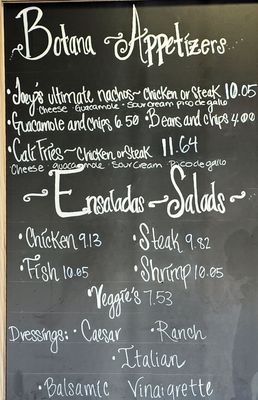 Botana ~ Appetizers ~
• Joey's ultimate nachos ~ Chicken or Steak 10.05
Cheese • Guacamole • Sour cream pico de gallo
• Guacamole and chips 6.50 • Bears and chips 4.00
• Cali Fries ~ Chicken or Steak 11.64
• Cheese guacamole • Sour Cream • Pico de gallo
~ Ensaladas ~ Salads ~
• Chicken 9.13 • Steak 9.82
• Fish 10.05 • Shrimp 10.05
• Veggie's 7.53
Dressings: • Caesar • Ranch
• Italian
• Balsamic Vinaigrette